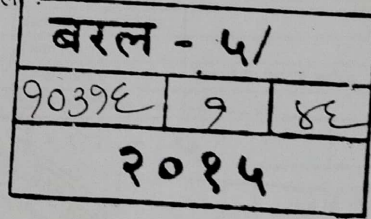 बरल - ५/
१०३१६ १ ४६
२०१५